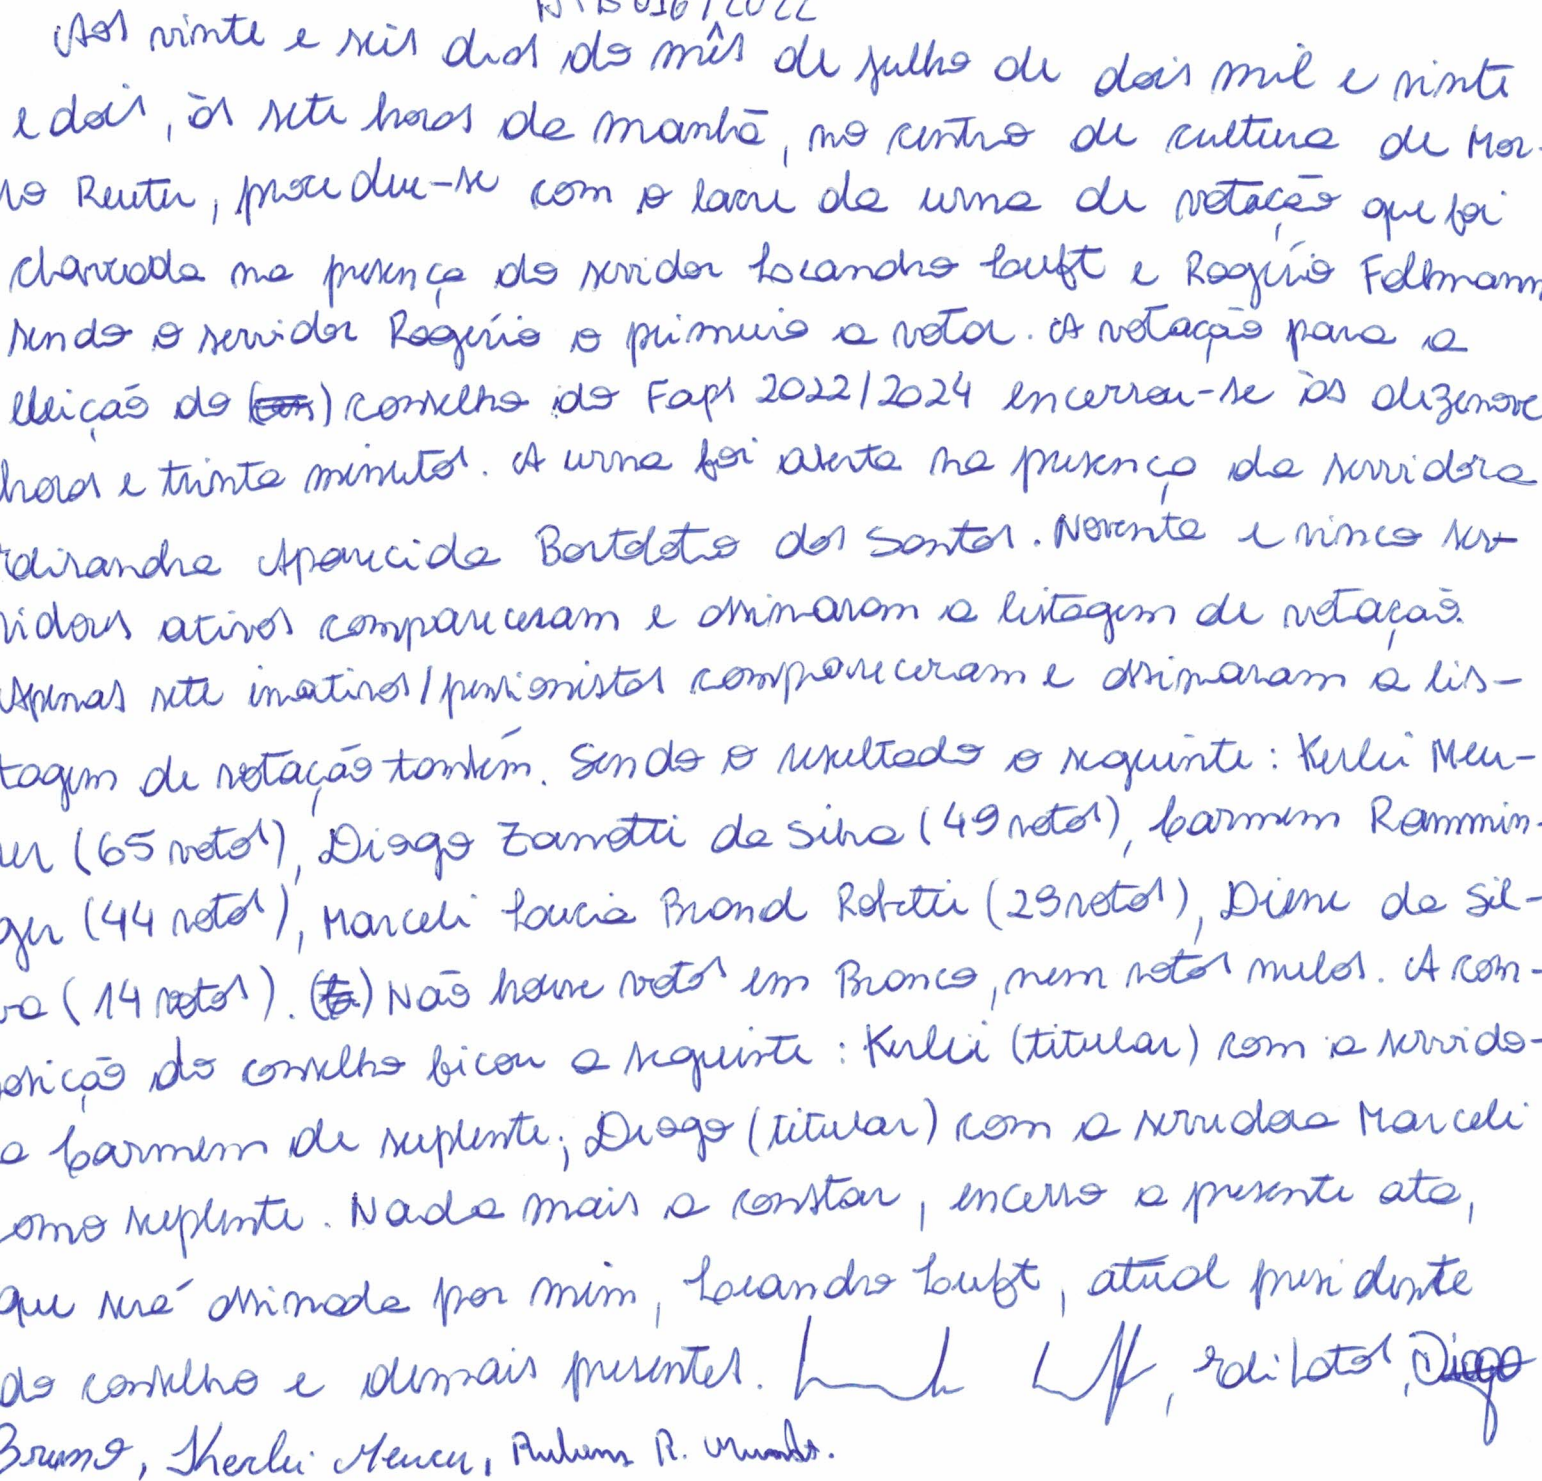 016/2022
Aos vinte e seis dias do mês de julho de dois mil e vinte
e dois, às sete horas da manhã, no centro de cultura de Mor-
ro Reuter, procedeu-se com o lacre da urna de votação que foi
chaveada na presença do servidor Leandro Luft e Rogério Feltmann
sendo o servidor Rogério o primeiro a votar. A votação para a
eleição do conselho do Faps 2022/2024 encerrou-se às dezenove
horas e trinta minutos. A urna foi aberta na presença da servidora
Edisandra Aparecida Bortoloto dos Santos. Noventa e cinco ser-
vidores ativos compareceram e assinaram a listagem de votação.
Apenas sete inativos/pensionistas compareceram e assinaram a lis-
tagem de votação também. Sendo o resultado o seguinte: Kerlei Meu-
rer (65 votos), Diogo Zanotti da Silva (49 votos), Carmem Rammin-
ger (44 votos), Marceli Loucia Brand Robetti (29 votos), Diene da Sil-
va (14 votos). Não houve votos em Branco, nem votos nulos. A com-
posição do conselho ficou a seguinte: Kerlei (titular) com a servido-
a Carmem de suplente; Diogo (titular) com a servidora Marceli
como suplente. Nada mais a constar, encerro a presente ata,
que será assinada por mim, Leandro Luft, atual presidente
do conselho e demais presentes. Diogo
Kerlei Meurer, Rubens R.